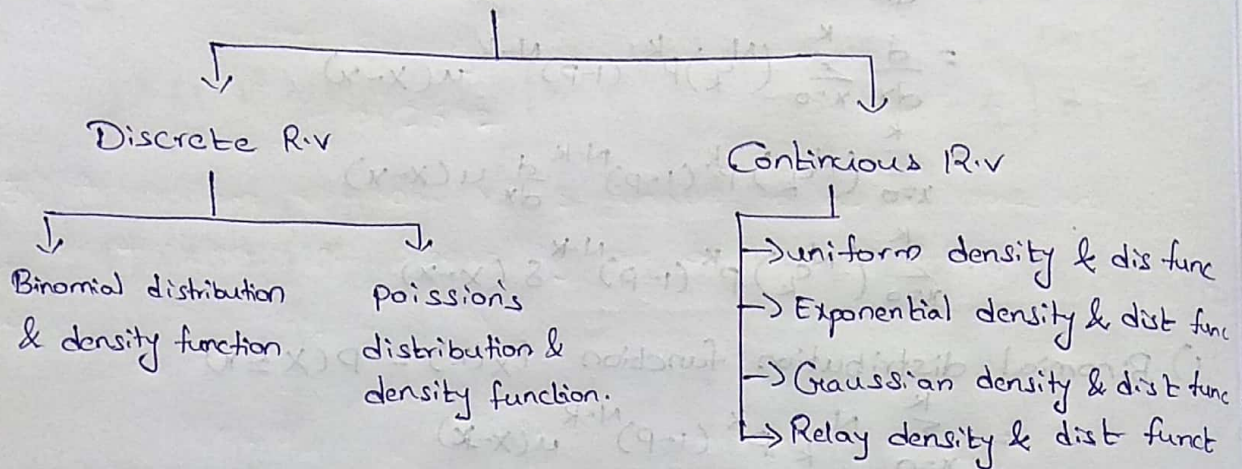 Discrete R.v
Continuous R.v
Binomial distribution
& density function
poission's
distribution &
density function.
→ uniform density & dis func
→ Exponential density & dist func
→ Gaussian density & dist func
→ Relay density & dist funct